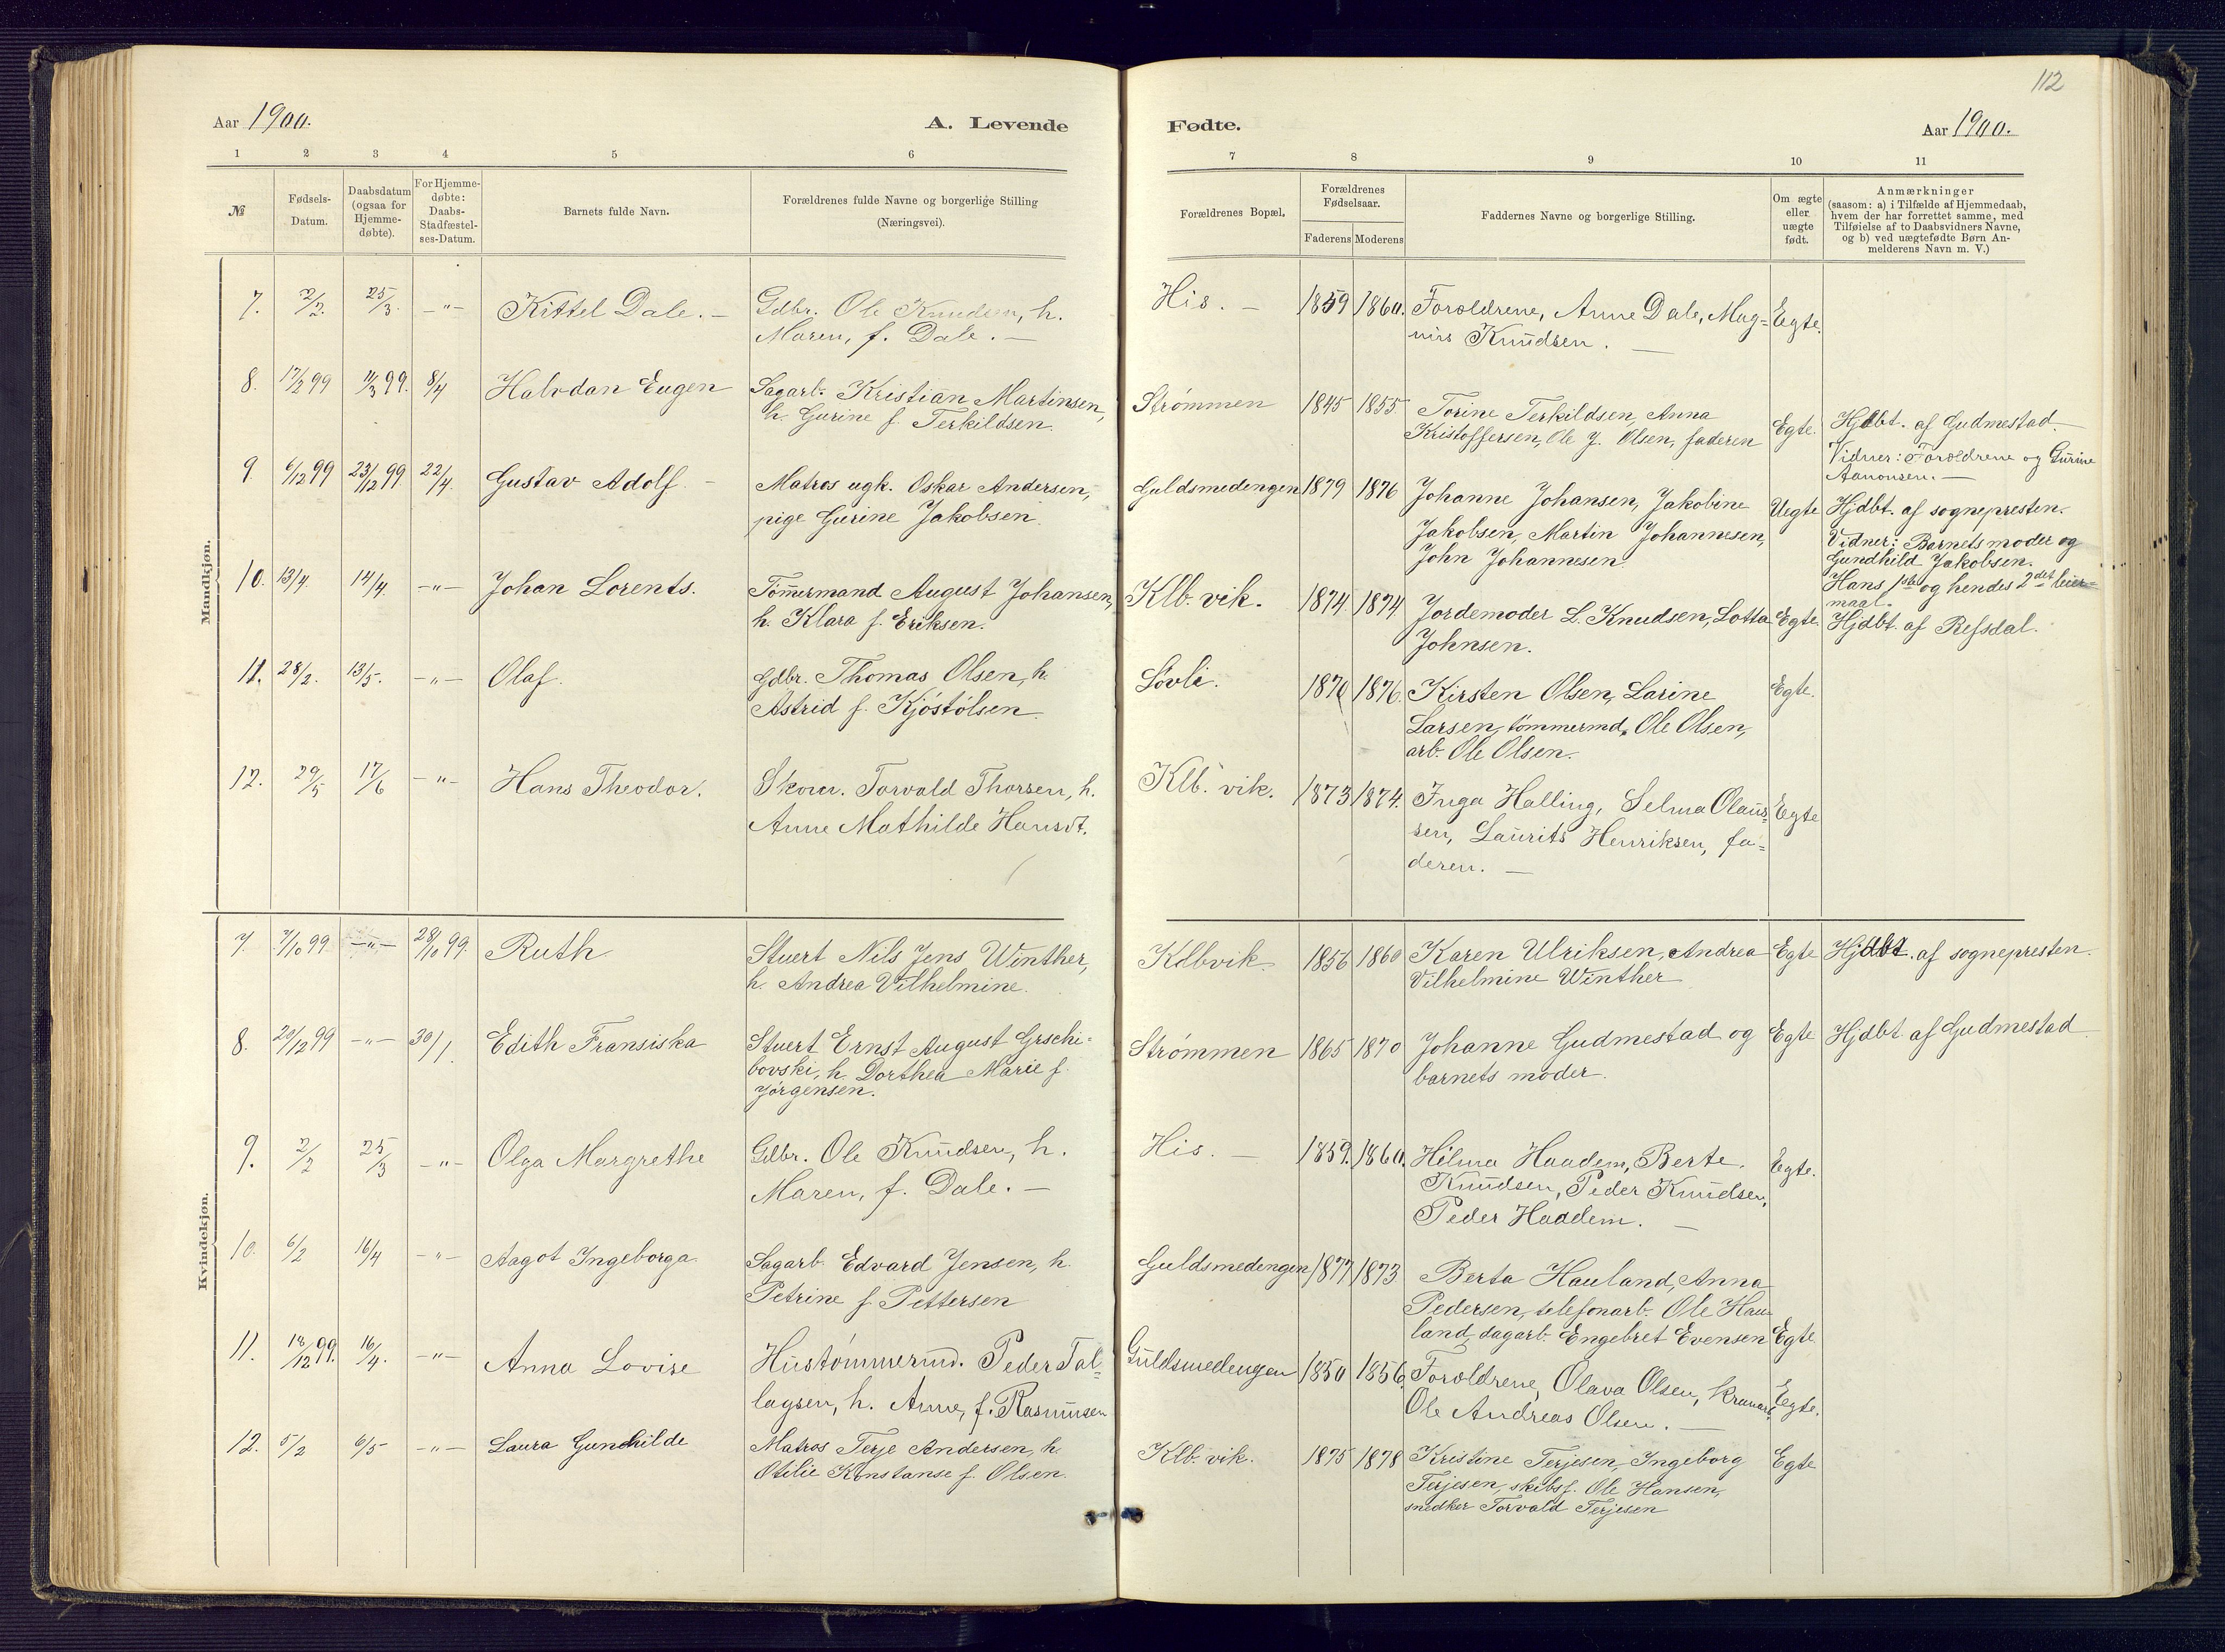 112
Aar 1900.
A. Levende
Fødte.
Aar 1900.
1 2 3 4 5 6
7 8 9 10 11
№
Fødsels-
Datum.
Daabsdatum
(ogsaa for
Hjemme-
døbte).
For Hjemme-
døbte:
Daabs-
Stadfæstel-
ses-Datum.
Barnets fulde Navn.
Forældrenes fulde Navne og borgerlige Stilling
(Næringsvei).
Forældrenes Bopæl.
Forældrenes
Fødselsaar.
Faderens Moderens
Faddernes Navne og borgerlige Stilling.
Om ægte
eller
uægte
født.
Anmærkninger
(saasom: a) i Tilfælde af Hjemmedaab,
hvem der har forrettet samme, med
Tilføielse af to Daabsvidners Navne,
og b) ved uægtefødte Børn An-
melderens Navn m. V.)
Mandkjøn.
7. 2/2. 25/3. -"- Kittel Dale. –
Gdbr. Ole Knudsen, h.
Maren, f. Dale. –
His. – 1859 1860.
Foroldrene, Anne Dale, Mag-
nus Knudsen. –
Egte.
8. 17/2 99 11/3 99. 8/4 Halvdan Eugen
Sagarb. Kristian Martinsen,
h. Gurine f. Terkildsen.
Strømmen 1845 1855
Torine Terkildsen, Anna
Kristoffersen, Ole J. Olsen, faderen
Egte.
Hjdbt. af Gudmestad.
Vidner: Foroldrene og Gurine
Aanonsen. –
9. 6/12 99 23/12 99 22/4. Gustav Adolf. –
Matros ugk. Oskar Andersen,
pige Gurine Jakobsen.
Guldsmedengen 1879 1876
Johanne Johansen, Jakobine
Jakobsen, Martin Johannesen,
John Johannesen.
Uegte
Hjdbt. af sognepresten.
Vidner: Barnets moder og
Gundhild Jakobsen.
Hans 1ste og hendes 2det leier-
maal.
10. 13/4. 14/4. -"- Johan Lorents.
Tømmermand August Johansen,
h. Klara f. Eriksen.
Klb. vik. 1874. 1874
Jordemoder L. Knudsen, Lotta
Johnsen.
Egte.
Hjdbt. af Refsdal.
11. 28/2. 13/5. -"- Olaf.
Gdbr. Thomas Olsen, h.
Astrid f. Kjøstølsen.
Løvli. 1870 1876.
Kirsten Olsen, Larine
Larsen, tømmermd. Ole Olsen,
arb. Ole Olsen.
Egte.
12. 29/5 17/6 -"- Hans Theodor.
Skom. Torvald Thorsen, h.
Anne Mathilde Hansdt.
Klb. vik. 1873 1874.
Inga Halling, Selma Olaus-
sen, Laurits Henriksen, fa-
deren. –
Egte
Kvindekjøn.
7. 7/10 99 -"- 28/10 99. Ruth
Stuert Nils Jens Winther,
h. Andrea Vilhelmine.
Kolbvik. 1856 1860
Karen Ulriksen, Andrea
Vilhelmine Winther
Egte
Hjdbt. af sognepresten.
8. 20/12 99 -"- 30/1. Edith Fransiska
Stuert Ernst August Grschi-
bovski, h. Dorthea Marie f.
Jørgensen.
Strømmen 1865 1870
Johanne Gudmestad og
barnets moder.
Egte
Hjdbt af Gudmestad
9. 2/2 25/3 -"- Olga Margrethe
Gdbr. Ole Knudsen, h.
Maren, f. Dale. –
His. – 1859. 1860.
Hilma Haadem, Berte
Knudsen, Peder Knudsen,
Peder Haddem. –
Egte.
10. 6/2 16/4 -"- Aagot Ingeborga
Sagarb. Edvard Jensen, h.
Petrine f. Pettersen
Guldsmedengen 1877 1873
Berta Hauland, Anna
Pedersen, telefonarb. Ole Hau-
land, dagarb. Engebret Evensen
Egte
11. 18/12 99. 16/4. -"- Anna Lovise
Hustømmermd. Peder Tal-
lagsen, h. Anne, f. Rasmussen
Guldsmedengen 1850 1856.
Foroldrene, Olava Olsen,
Ole Andreas Olsen. –
Egte.
12. 5/2 6/5 -"- Laura Gunhilde
Matros Terje Andersen, h.
Otilie Konstanse f. Olsen.
Klb. vik. 1875 1878
Kristine Terjesen, Ingeborg
Terjesen, skibsf. Ole Hansen,
snedker Torvald Terjesen
Egte